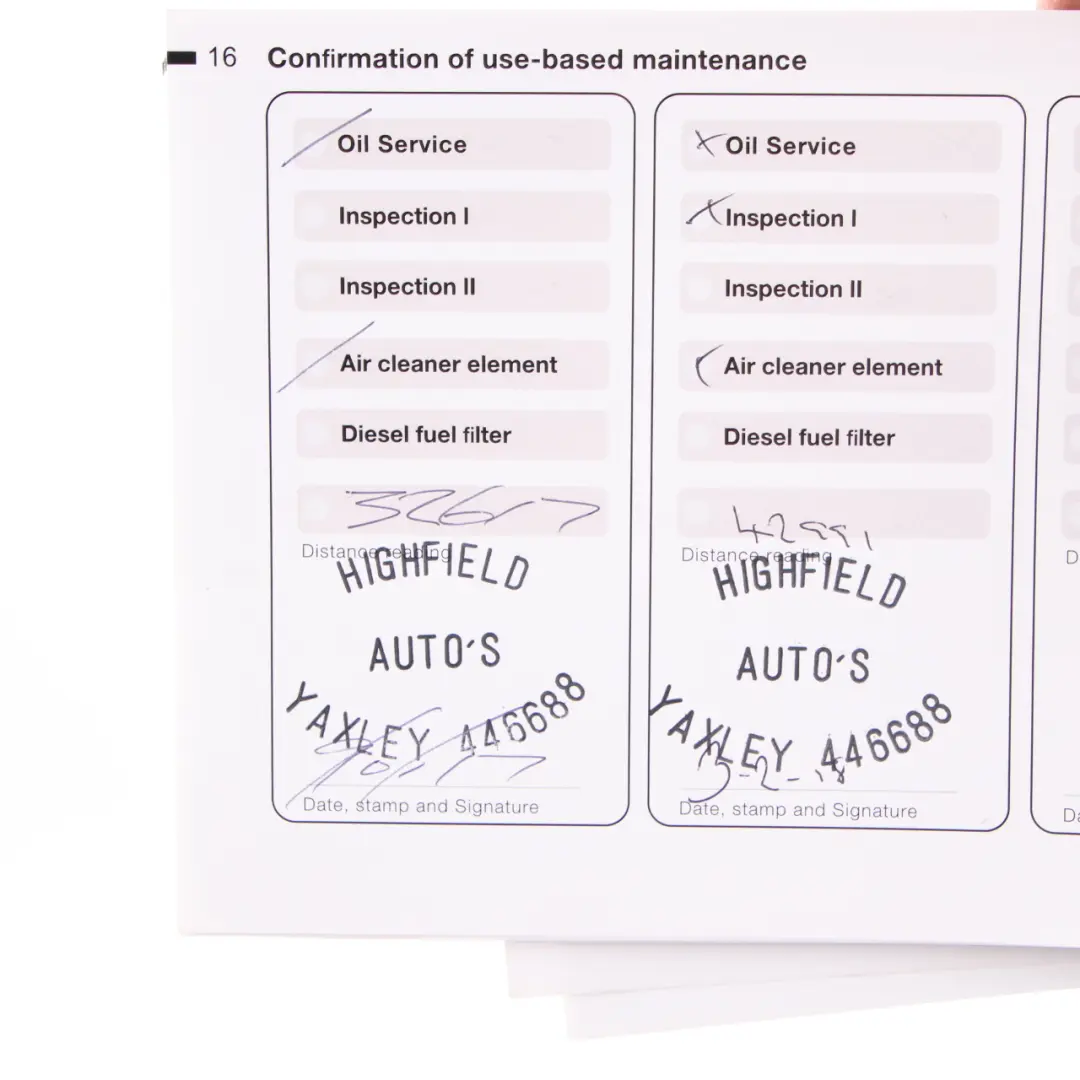 16 Confirmation of use-based maintenance
Oil Service
Inspection I
Inspection II
Air cleaner element
Diesel fuel filter
32617
Distance reading
HIGHFIELD
AUTO'S
YAXLEY 446688
Date, stamp and Signature
Oil Service
Inspection I
Inspection II
Air cleaner element
Diesel fuel filter
42991
Distance reading
HIGHFIELD
AUTO'S
YAXLEY 446688
Date, stamp and Signature